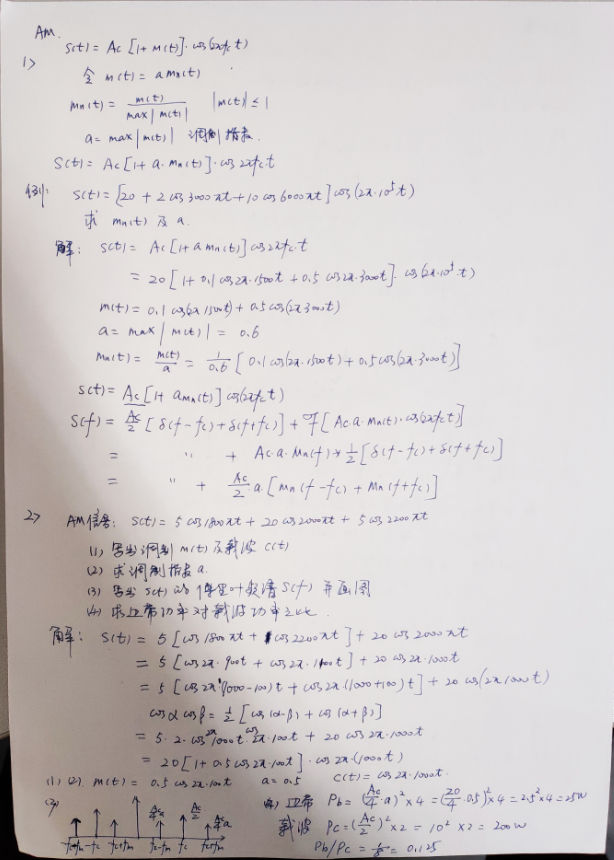 AM.
1> S(t) = Ac [1 + m(t)]·cos(2πfc t)
令 m(t) = a mn(t)
mn(t) = m(t) / max|m(t)|  |m(t)| ≤ 1
a = max |m(t)| 调制指数.
S(t) = Ac [1 + a·mn(t)]·cos 2πfc t
例: S(t) = [20 + 2 cos 3000πt + 10 cos 6000πt] cos (2π·10⁵t)
求 mn(t) 及 a.
解: S(t) = Ac [1 + a mn(t)] cos 2πfc·t
= 20 [1 + 0.1 cos 2π·1500t + 0.5 cos 2π·3000t]·cos (2π·10⁵·t)
m(t) = 0.1 cos(2π 1500t) + 0.5 cos(2π 3000t)
a = max |m(t)| = 0.6
mn(t) = m(t)/a = 1/0.6 [0.1 cos(2π·1500t) + 0.5 cos(2π·3000t)]
S(t) = Ac [1 + a mn(t)] cos(2πfc t)
S(f) = Ac/2 [δ(f-fc) + δ(f+fc)] + ℱ[Ac·a·mn(t)·cos(2πfc t)]
= 〃 + Ac·a·Mn(f) * 1/2 [δ(f-fc) + δ(f+fc)]
= 〃 + Ac/2·a [Mn(f-fc) + Mn(f+fc)]
2> AM信号: S(t) = 5 cos 1800πt + 20 cos 2000πt + 5 cos 2200πt
(1) 写出调制 m(t) 及载波 c(t)
(2) 求调制指数 a.
(3) 写出 S(t) 的傅里叶频谱 S(f) 并画图
(4) 求边带功率对载波功率之比.
解: S(t) = 5 [cos 1800πt + cos 2200πt] + 20 cos 2000πt
= 5 [cos 2π·900t + cos 2π·1100t] + 20 cos 2π·1000t
= 5 [cos 2π(1000-100)t + cos 2π(1000+100)t] + 20 cos(2π 1000t)
cosα cosβ = 1/2 [cos(α-β) + cos(α+β)]
= 5·2·cos 2π1000t·cos 2π·100t + 20 cos 2π·1000t
= 20 [1 + 0.5 cos 2π·100t]·cos 2π·(1000t)
(1) (2) m(t) = 0.5 cos 2π·100t  a = 0.5  c(t) = cos 2π·1000t.
(3) Ac/4 a  Ac/2  Ac/4 a
-fc  fc
(4) 边带 Pb = (Ac/4·a)² × 4 = (20/4·0.5)² × 4 = 2.5² × 4 = 25W
载波 Pc = (Ac/2)² × 2 = 10² × 2 = 200W
Pb/Pc = = 0.125